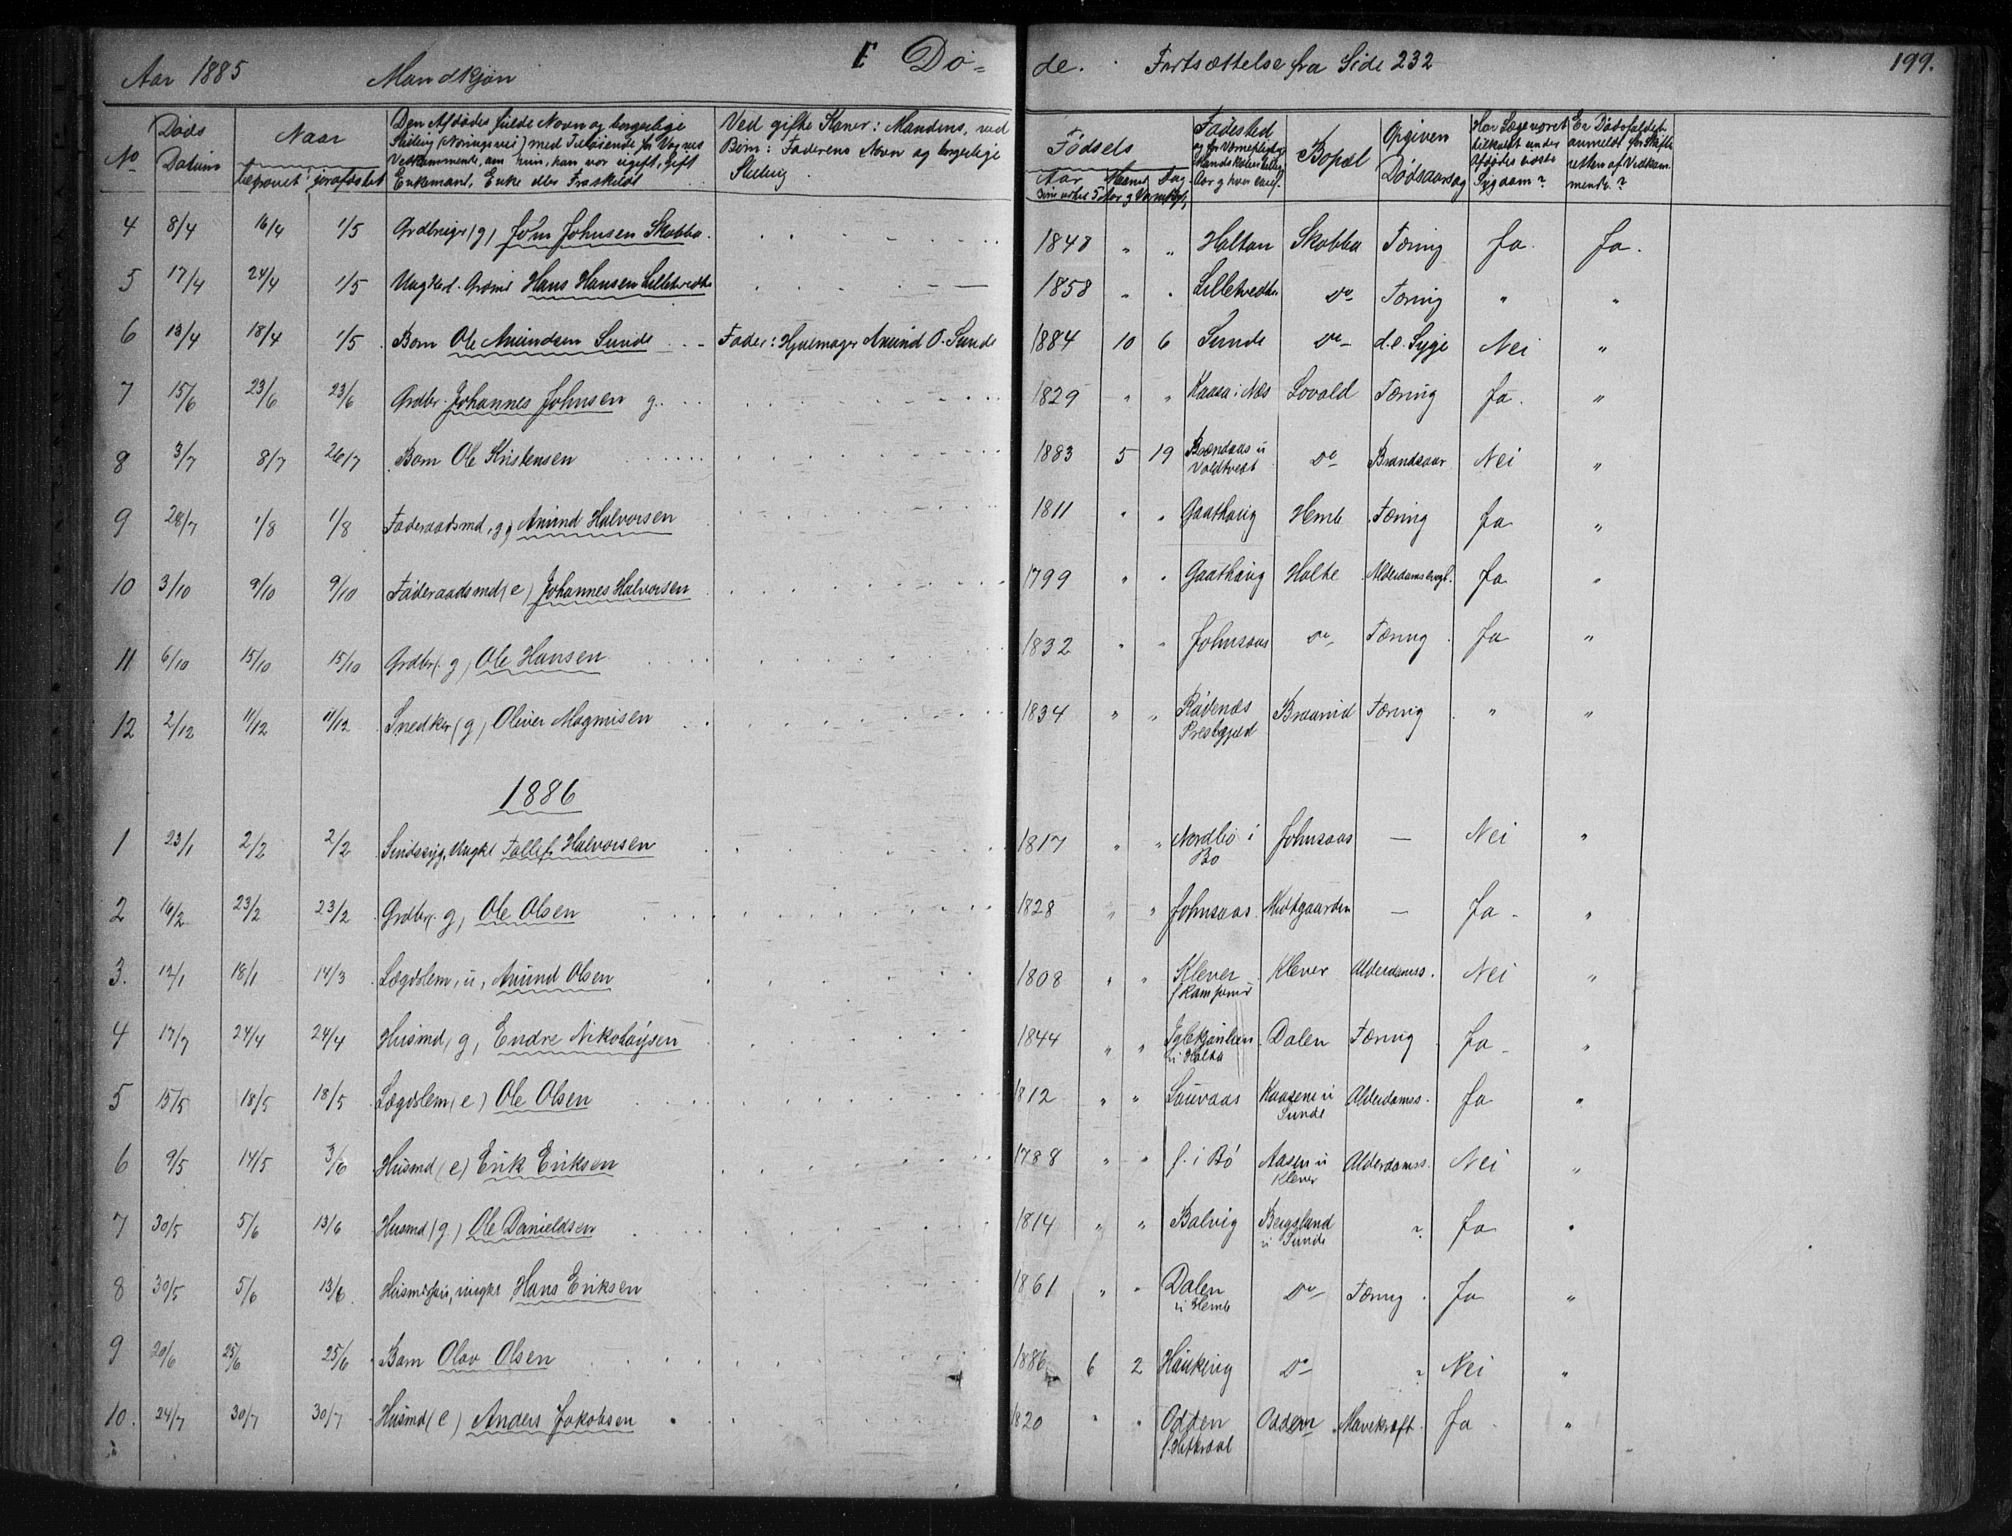 Aar 1885 Mandkjøn I Dø- de. Fortsættelse fra Side 232 199.
No Døds Datum Naar begravet jordfæstet Den Afdødes fulde Navn og borgerlige Stilling (Næringsvei) med Tilføiende for Voxnes Vedkommende, om hun, han var ugift, Gift Enkemand, Enke eller Fraskildt Ved gifte Koner: Mandens, ved Børn: Faderens Navn og borgerlige Stilling. Fødsels Aar Maaned Dag Fødested Bopæl Opgiven Dødsaarsag Har Læge været tilkaldt under Afdødes sidste Sygdom? Er Dødsfaldet anmeldt for Skifteretten af Vedkommende?
4 8/4 16/4 1/5 Grdbruger (g) John Johnsen Skobba. 1848 " " Holtan Skobba Tæring Ja Ja.
5 17/4 24/4 1/5 Ungkarl. Hans Hansen Lilletvedt 1858 " " Lilletvedt Do Tæring " "
6 13/4 18/4 1/5 Barn Ole Amundsen Sunde Fader: Hjulmager Amund O. Sunde 1884 10 6 Sunde Do d.e. Syge Nei "
7 15/6 23/6 23/6 Grdbr. Johannes Johnsen g. 1829 " " Kaasa i Næs Lovald Tæring Ja. "
8 3/7 8/7 26/7 Barn Ole Kristensen 1883 5 19 Brændaas u Voldtvedt Do Brandsaar Nei "
9 28/7 1/8 1/8 Føderaadsmd, g, Amund Halvorsen 1811 " " Gaathaug Hemle Tæring Ja "
10 3/10 9/10 9/10 Føderaadsmd (e) Johannes Halvorsen 1799 " " Gaathaug Holte Alderdomssvagh. Ja "
11 6/10 15/10 15/10 Grdbr (g) Ole Hansen 1832 " " Johnsaas Do Tæring Ja "
12 2/12 11/12 11/12 Snedker (g) Oliver Magnusen 1834 " " Rødenæs Prestegjæld Tæring " "
1886
1 23/1 2/2 2/2 Sindssyg, Ungkl Tollef Halvorsen 1817 " " Nordbø i Bø Johnsaas — Nei "
2 16/2 23/2 23/2 Grdbr. g, Ole Olsen 1828 " " Johnsaas Midtgaarden — Ja "
3. 12/1 18/1 14/3 Lægdslem, u, Amund Olsen 1808 " " Klever Klever Alderdomss. Nei "
4 17/7 24/4 24/4 Husmd, g, Endre Nikolaysen 1844 " " Dalen Tæring Ja "
5 15/5 18/5 18/5 Lægdslem (e) Ole Olsen 1812 " " Sauraas Kaasene u Sunde Alderdomss. Ja "
6 9/5 14/5 3/6 Husmd (e) Erik Eriksen 1788 " " f. i Bø Aasen u Klever Alderdomss. Nei "
7 30/5 5/6 13/6 Husmd (g.) Ole Danieldsen 1814 " " Bolvig Bergsland u Sunde " Ja "
8 30/5 5/6 13/6 ungkl Hans Eriksen 1861 " " Dalen u Hemle Do Tæring Ja "
9 20/6 25/6 25/6 Barn Olav Olsen 1886 6 2 Haukeng Do " Nei "
10. 24/7 30/7 30/7 Husmd (e) Anders Jakobsen 1820 " " Odden Odden Mavekræft Ja "